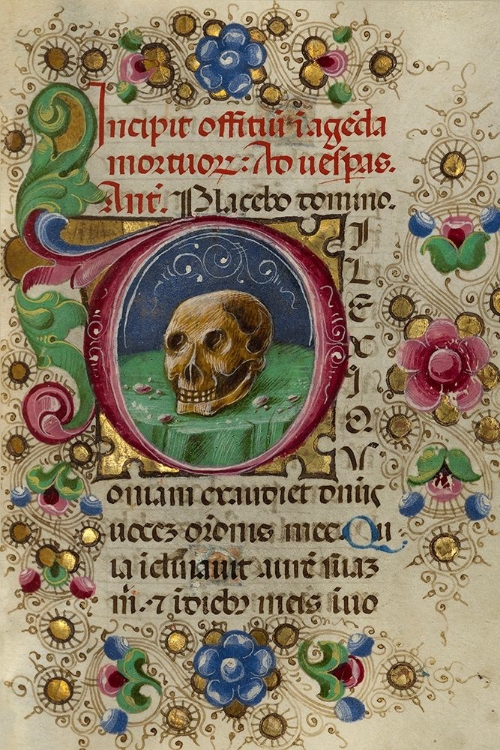 Incipit offitiū ī agēda
mortuorꝝ: Ad uespas.
Ant̄. Placebo domino.
D
I
L
E
X
I
Q
V
oniam exaudiet dn̄s
uocez orōnis mee. Qu
ia īclinauit aurē suaz
m̄. ⁊ ī dieb' meis īuo